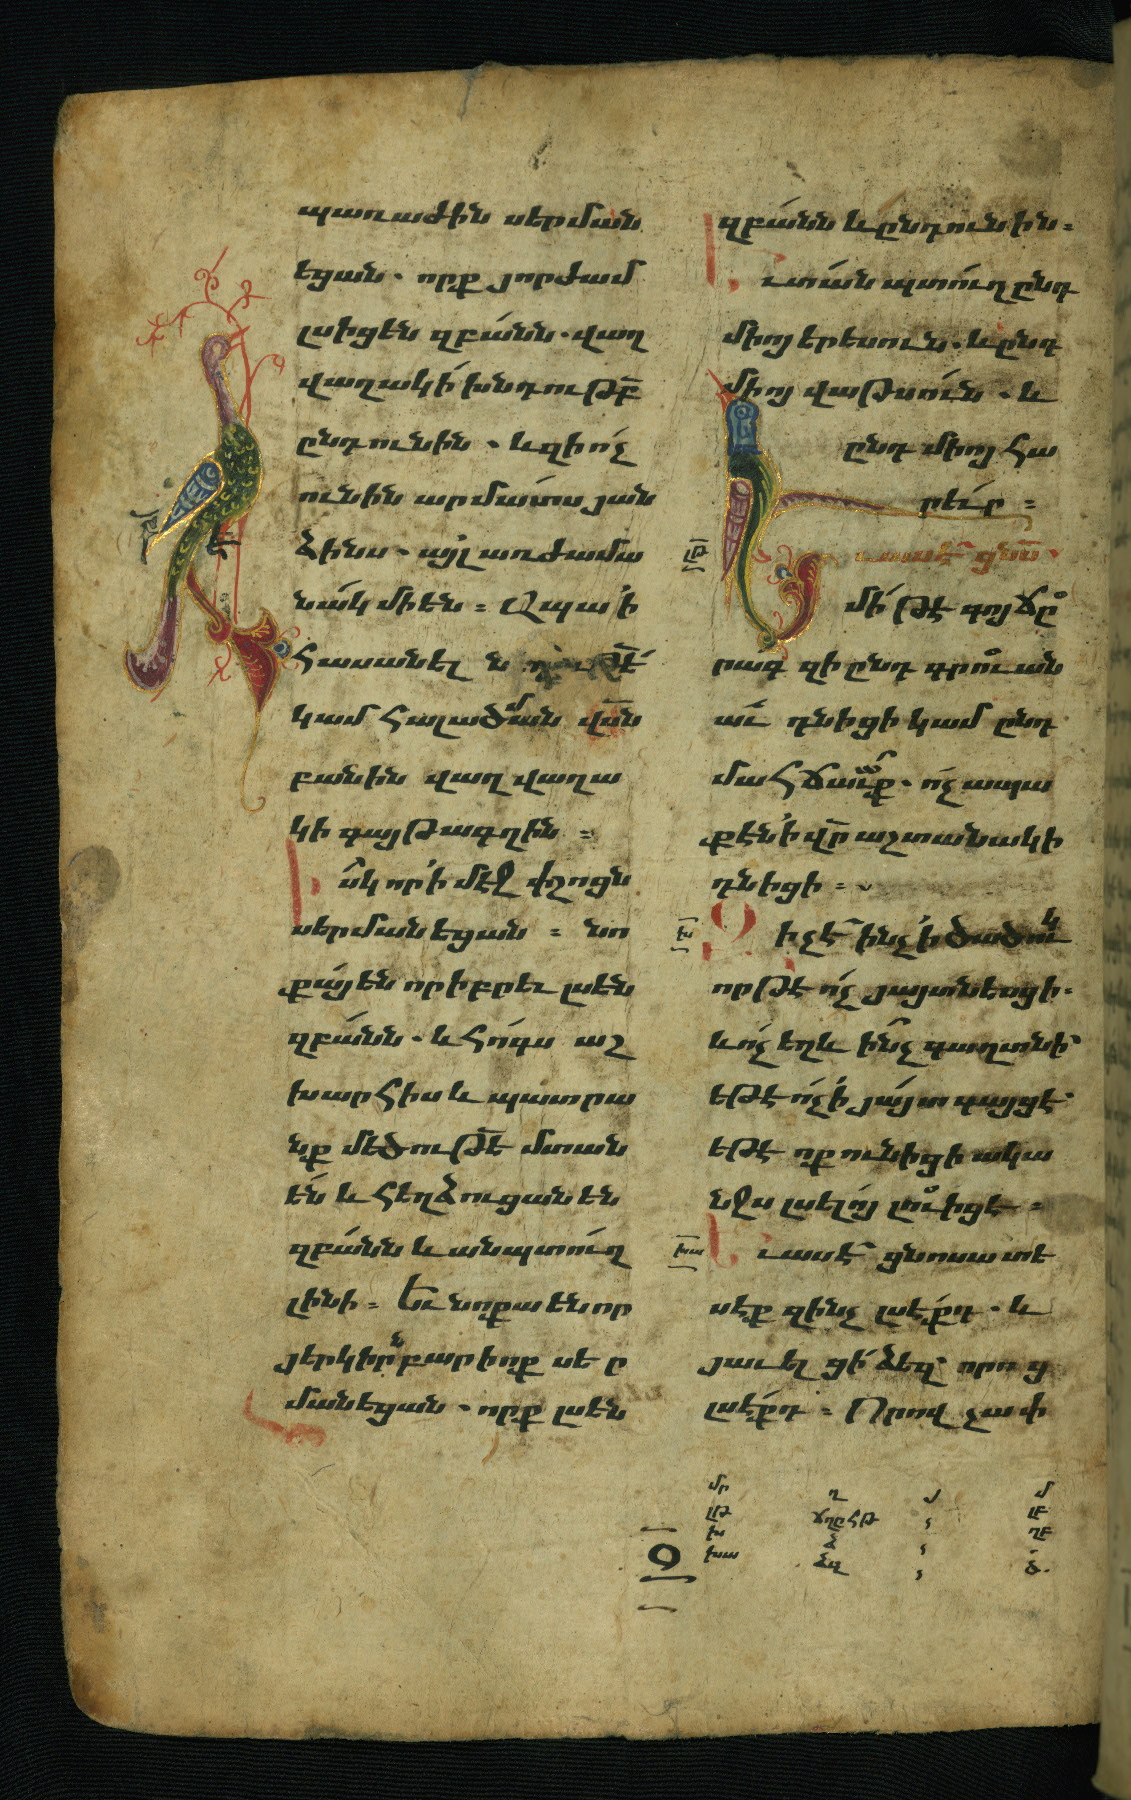 պառաժին սերման
եցան. որք յորժամ
լսիցեն զբանն. վաղ
վաղակի խնդութբ
ընդունին. և զի ոչ
ունին արմատս յան
ձինս. այլ առժամա
նակ մի են։ Ապա ՚ի
հասանել նեղութե
կամ հալածման վսն
բանին վաղվաղա
կի գայթագղին։
Իսկ որ ՚ի մէջ փշոցն
սերմանեցան։ նո
քա են որ իբրև լսեն
զբանն. և հոգս աշ
խարհիս և պատրա
նք մեծութե մտան
են և հեղձուցանեն
զբանն և անպտուղ
լինի։ Եւ նոքա են որ
յերկիրն բարիոք սեր
մանեցան. որք լսեն
զբանն և ընդունին։
և տան պտուղ ընդ
միոյ երեսուն. և ընդ
միոյ վաթսուն. և
ընդ միոյ հա
րեւր։
լթ Եւ ասէ ցնոսա.
մի թէ գոյ ճը
րագ զի ընդ գրուան
աւ դնիցի կամ ընդ
մահճաւք. ոչ ապա
քէն ՚ի վր աշտանակի
դնիցի։
խ Զի չէ ինչ ՚ի ծածուկ
որ թէ ոչ յայտնեսցի.
և ոչ եղև ինչ գաղտնի
եթէ ոչ ՚ի յայտ գայցէ
եթէ ոք ունիցի ակա
նջս լսելոյ լուիցէ։
խա Եւ ասէ ցնոսա տե
սէք զինչ լսէքդ. և
յաւել ցի ձեզ որոց
լսէքդ։ Որով չափ
մր ղ մ
լթ ճղը հթ լբ
խ ձ ղբ
խա ձզ ծ